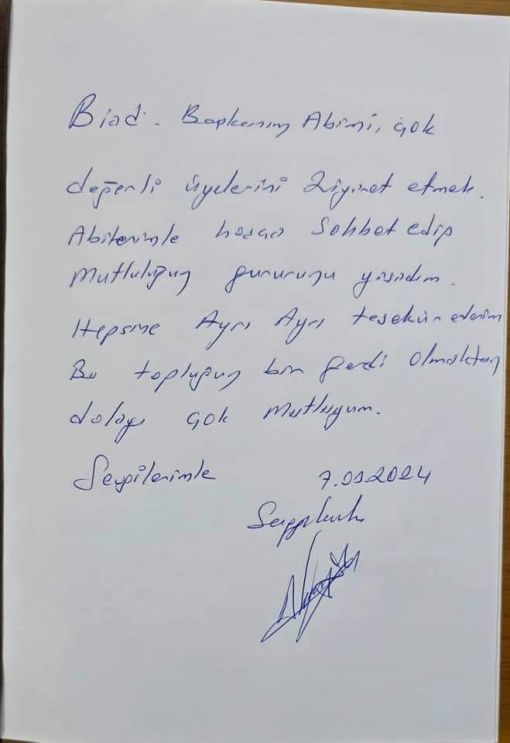 Biad. Başkanım Abimi, çok
değerli üyelerini Ziyaret etmek.
Abilerimle hoşça Sohbet edip
Mutluluğun gururunu yaşadım.
Hepsine Ayrı Ayrı teşekür ederim
Bu topluğun bir ferdi Olmaktan
dolayı çok Mutluyum.
Sevgilerimle 7.09.2024